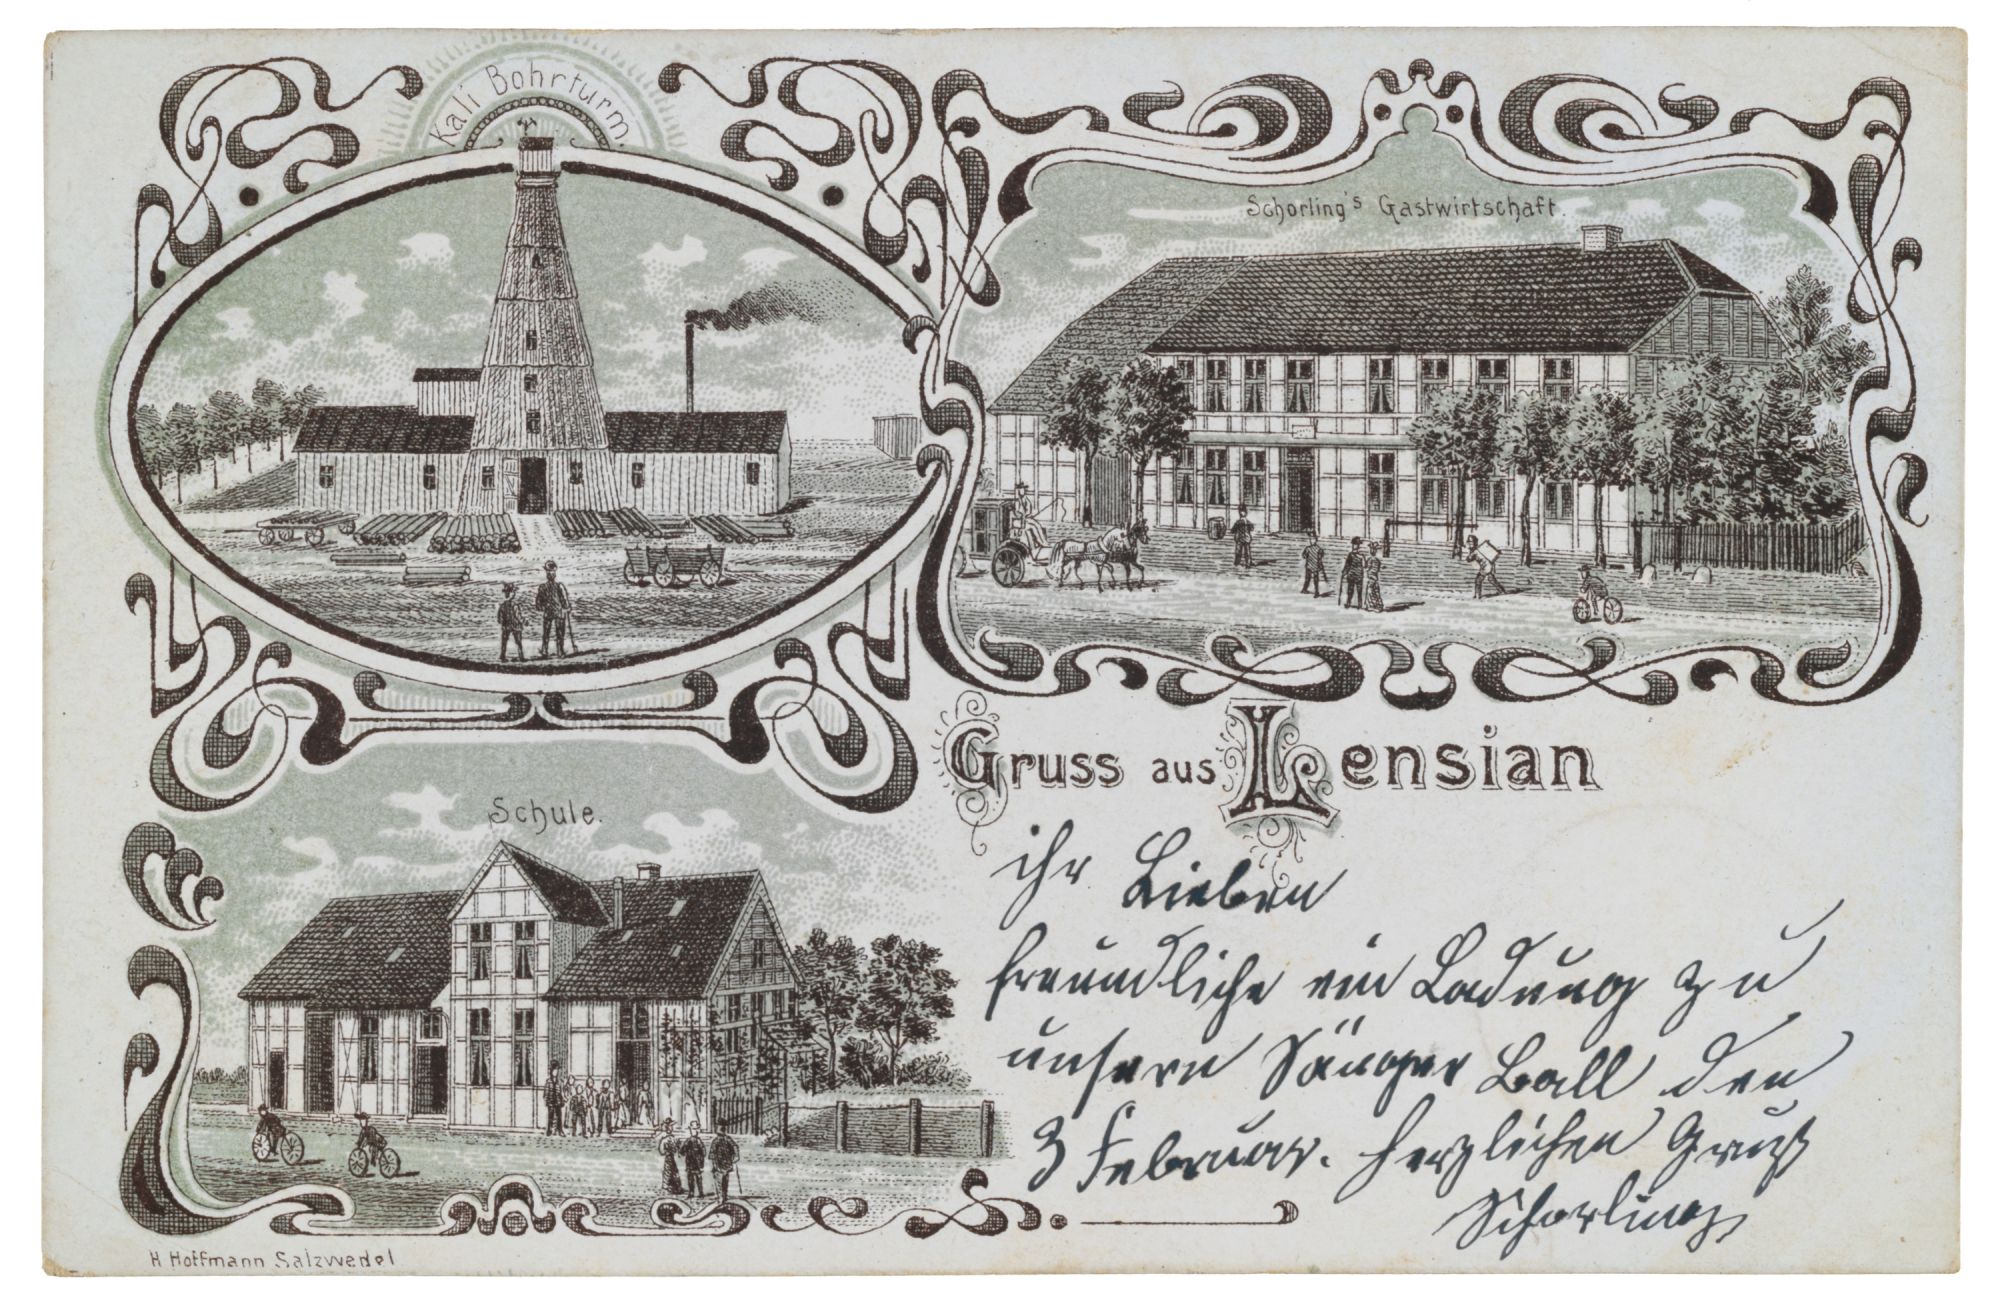 Kali Bohrturm.
Schorling's Gastwirtschaft.
Gruss aus Lensian
Schule.
ihr Lieben
freundliche ein Ladung zu
unsern Sänger Ball den
3 Februar. herzlichen Gruß
Schorling
H Hoffmann Salzwedel